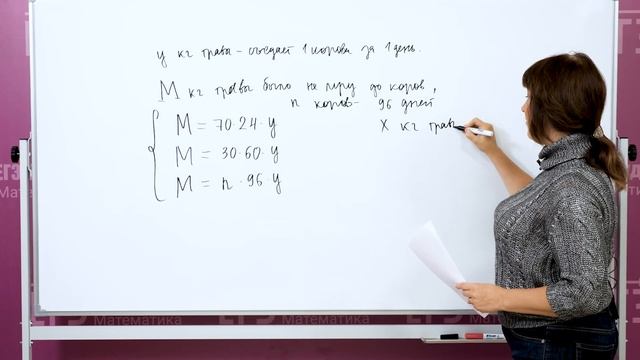 y кг травы – съедает 1 корова за 1 день.
M кг травы было на лугу до коров,
n коров – 96 дней
M = 70·24·y
X кг трав
M = 30·60·y
M = n·96·y
ЕГЭ
Математика
Математика
Математика
Математика